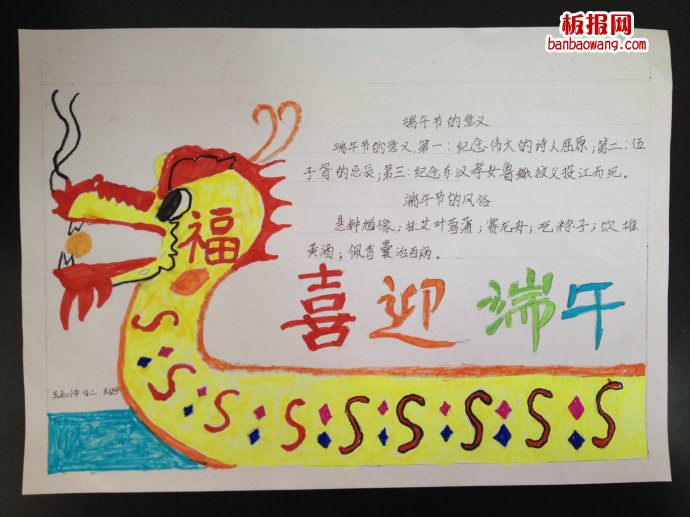 板报网
banbaowang.com
端午节的意义
端午节的意义,第一:纪念伟大的诗人屈原;第二:伍
子胥的忌辰;第三:纪念东汉孝女曹娥救父投江而死。
端午节的风俗
悬钟馗像;挂艾叶菖蒲;赛龙舟;吃粽子;饮雄
黄酒;佩香囊治百病。
福
喜迎端午